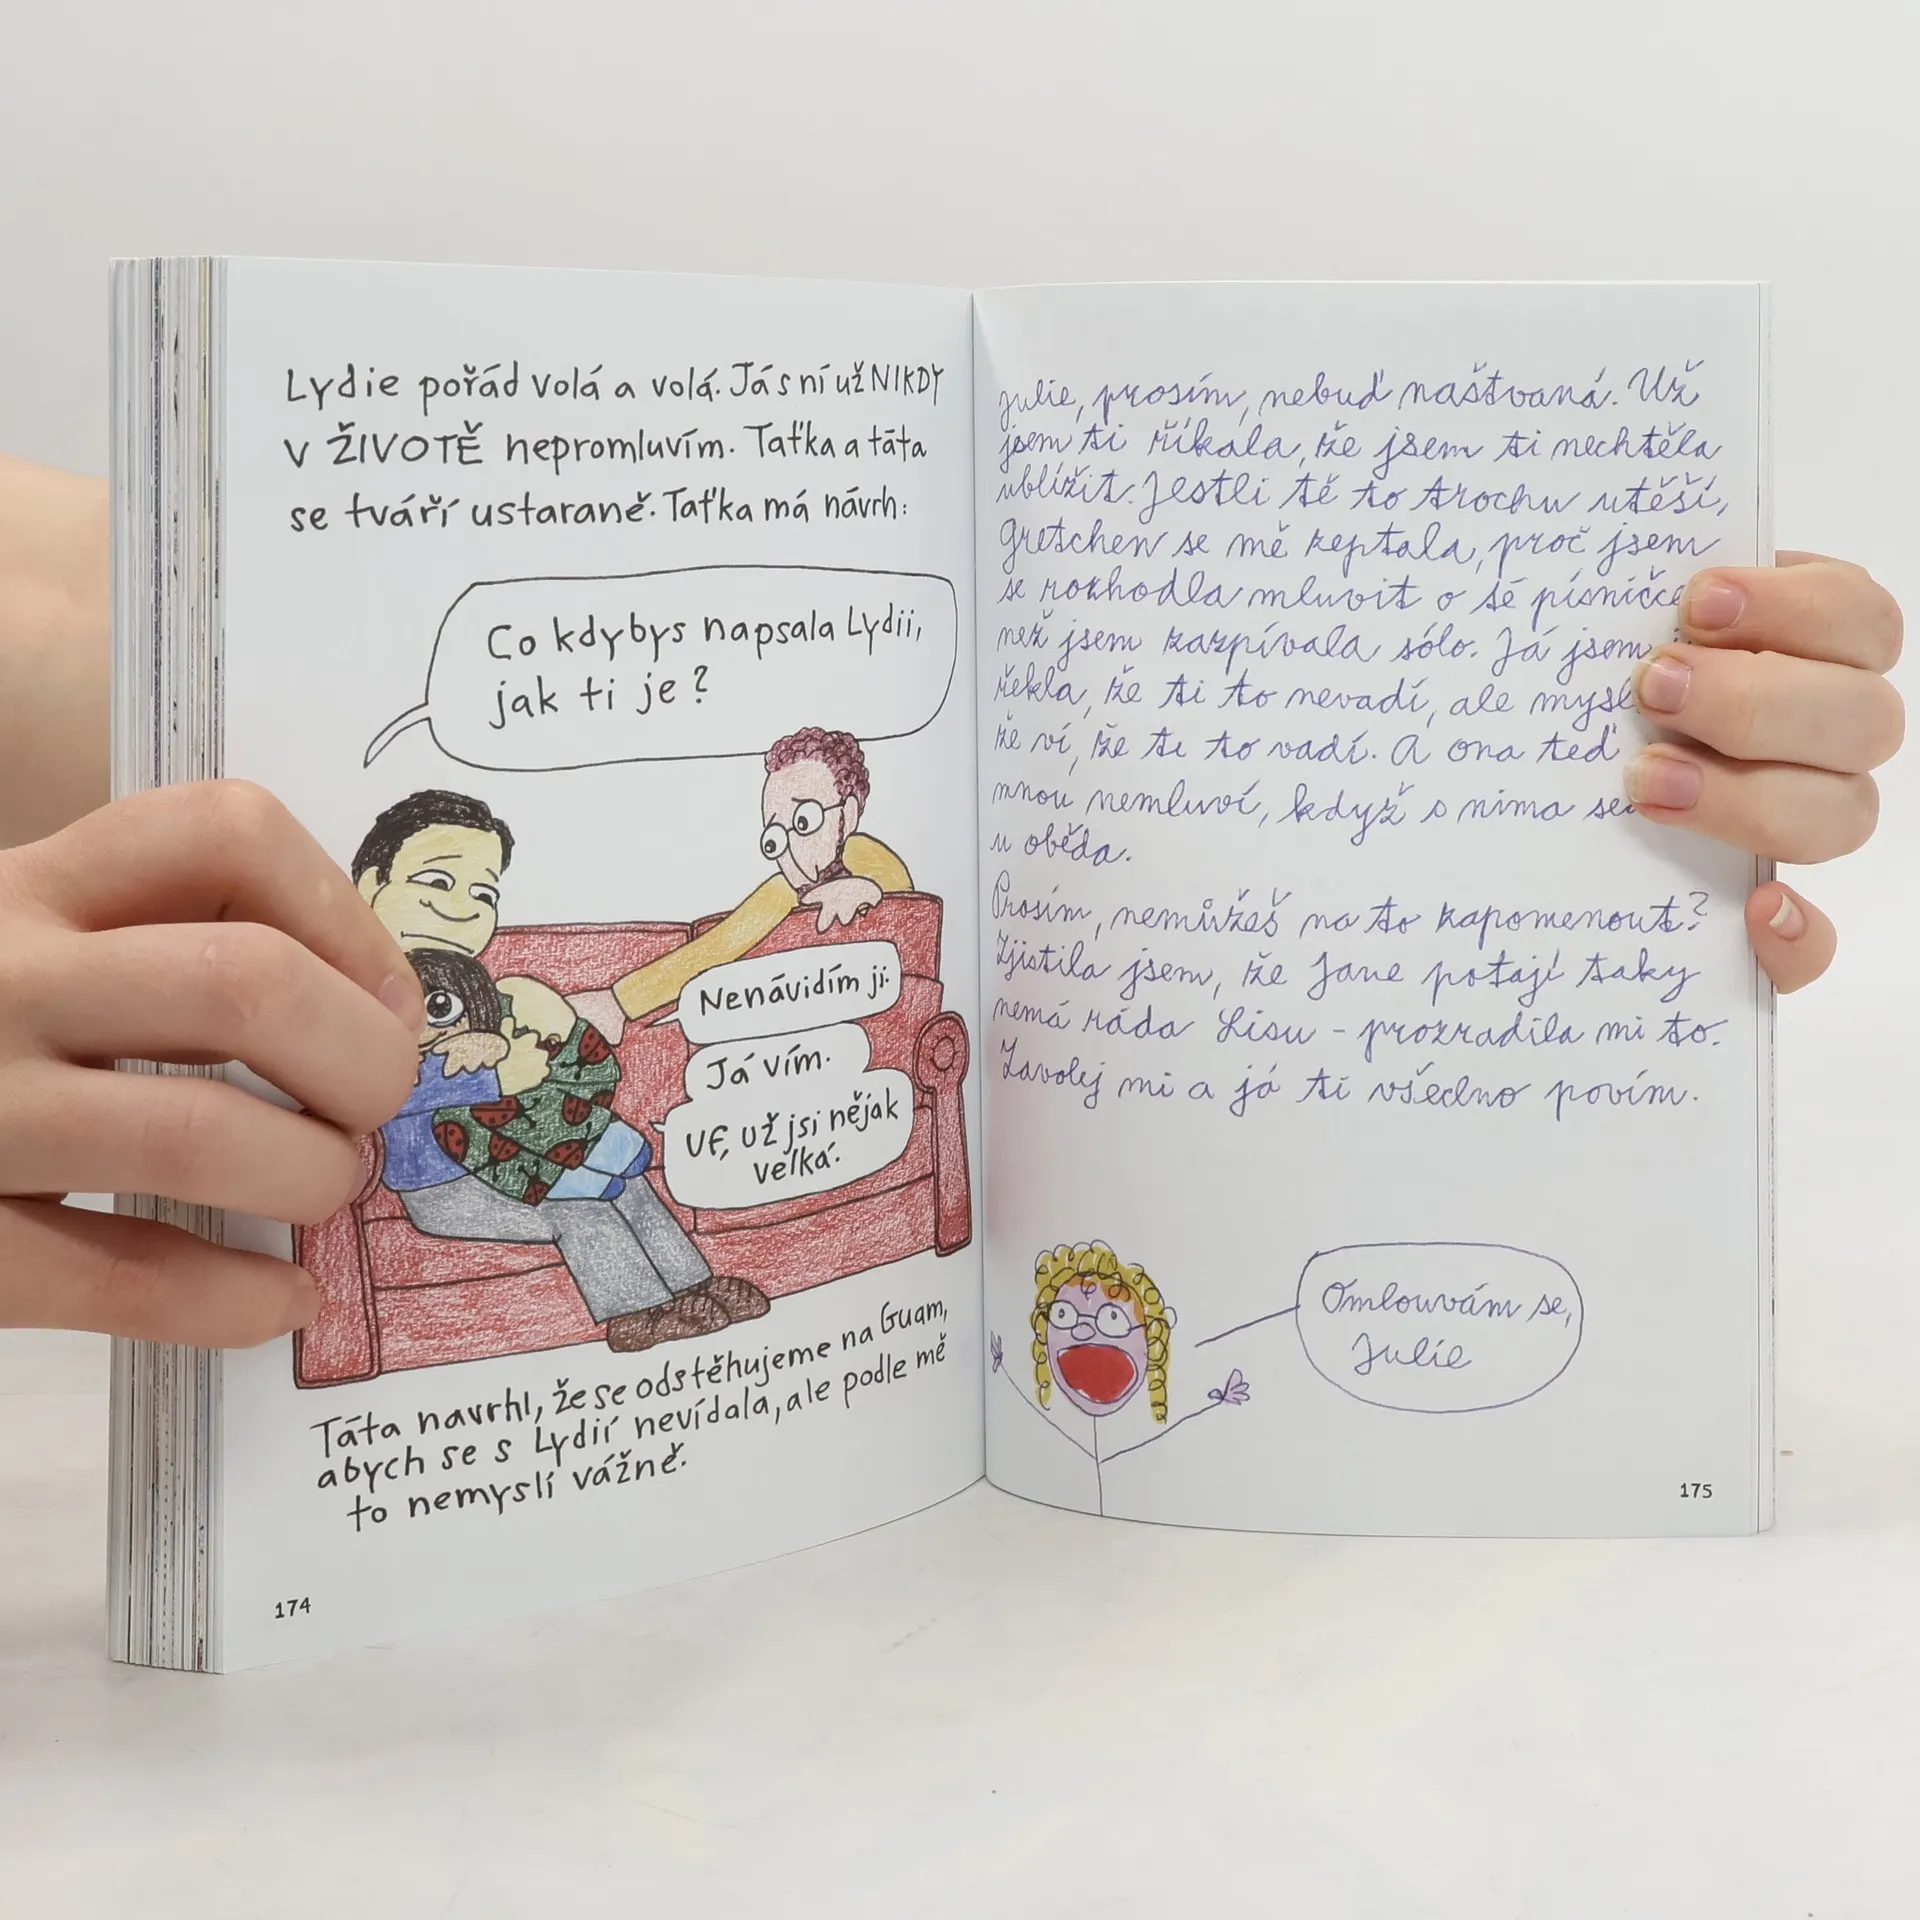 Lydie pořád volá a volá. Já s ní už NIKDY
V ŽIVOTĚ nepromluvím. Taťka a táta
se tváří ustaraně. Taťka má návrh:
Co kdybys napsala Lydii,
jak ti je?
Nenávidím ji.
Já vím.
Uf, už jsi nějak
velká.
Táta navrhl, že se odstěhujeme na Guam,
abych se s Lydií nevídala, ale podle mě
to nemyslí vážně.
174
Julie, prosím, nebuď naštvaná. Už
jsem ti říkala, že jsem ti nechtěla
ublížit. Jestli tě to trochu utěší,
Gretchen se mě zeptala, proč jsem
se rozhodla mluvit o té písničce
než jsem zazpívala sólo. Já jsem
řekla, že ti to nevadí, ale mysl
že ví, že ti to vadí. A ona teď
mnou nemluví, když s nima
u oběda.
Prosím, nemůžeš na to zapomenout?
Zjistila jsem, že Jane potají taky
nemá ráda Lisu - prozradila mi to.
Zavolej mi a já ti všechno povím.
Omlouvám se,
Julie
175